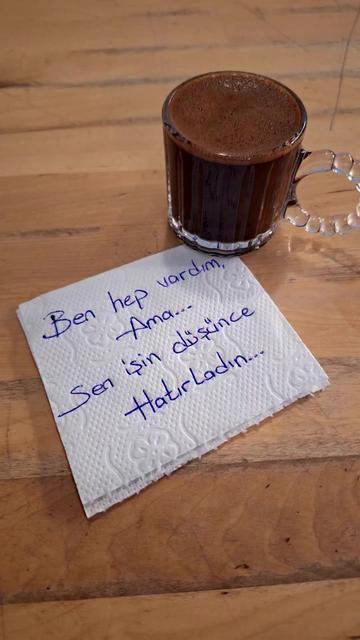 Ben hep vardım,
Ama...
Sen işin düşünce
Hatırladın...